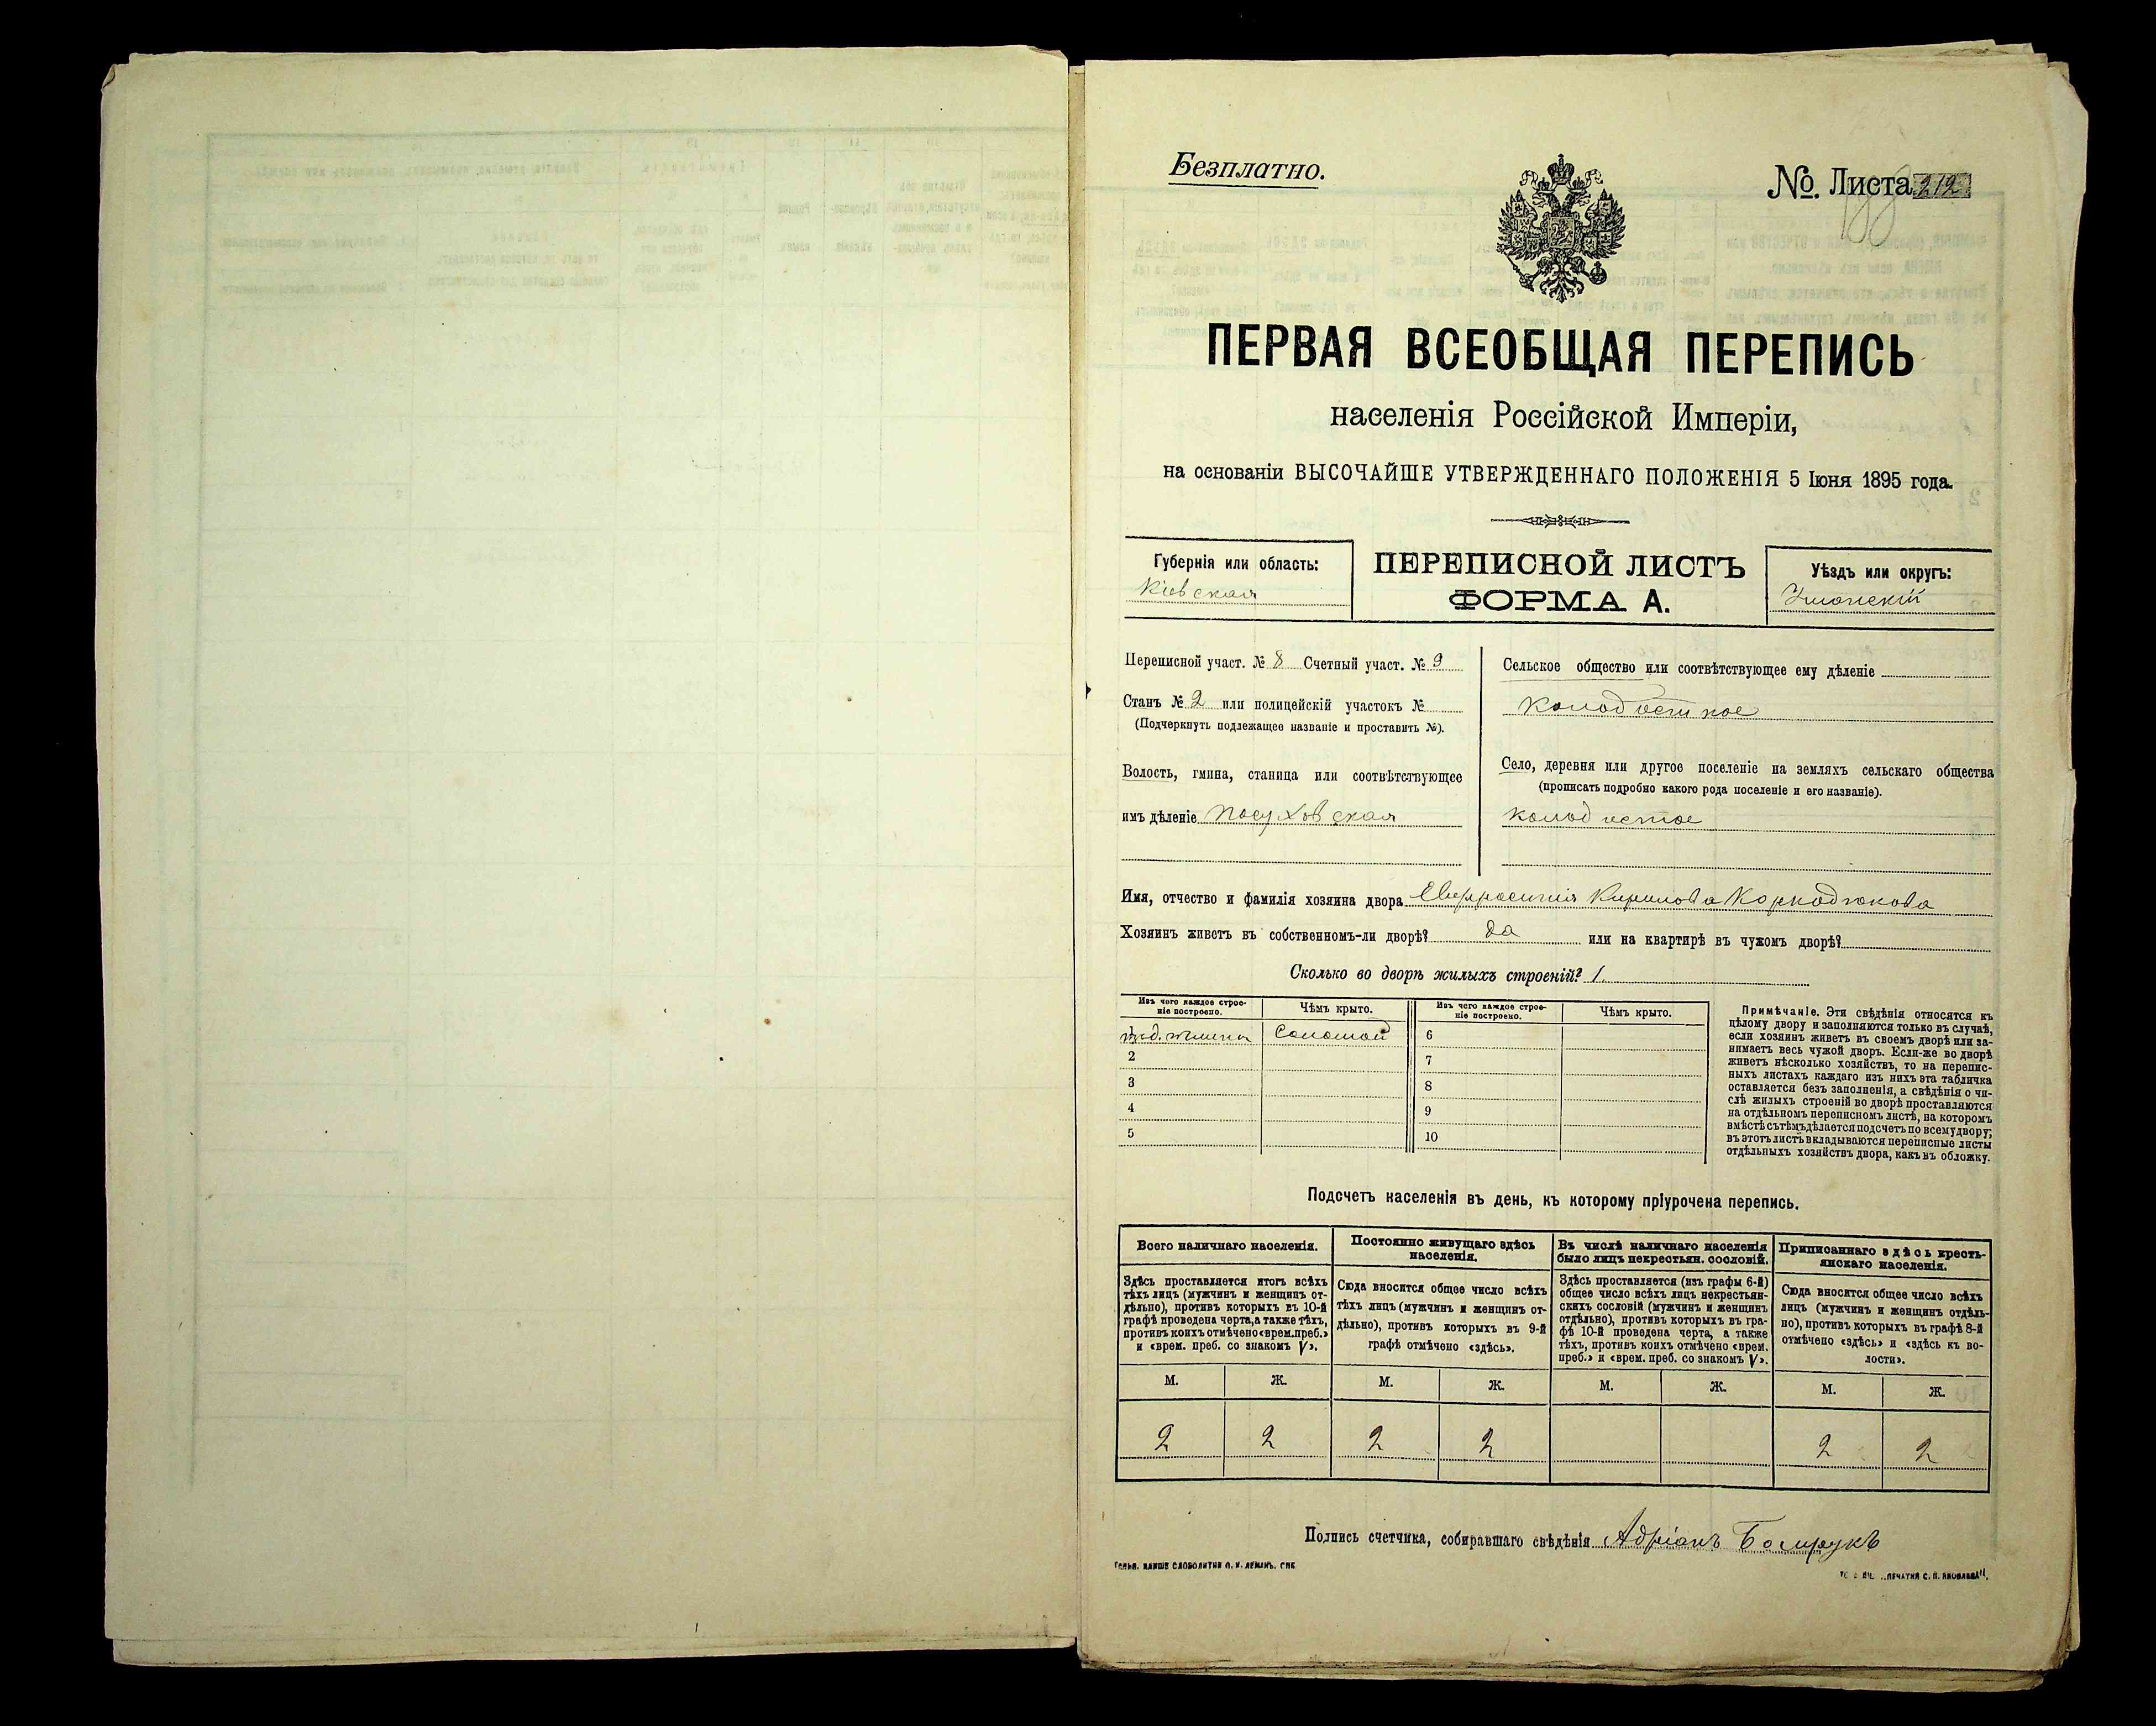 Безплатно.
№. Листа 212
ПЕРВАЯ ВСЕОБЩАЯ ПЕРЕПИСЬ
населенія Россійской Имперіи,
на основаніи ВЫСОЧАЙШЕ УТВЕРЖДЕННАГО ПОЛОЖЕНІЯ 5 Іюня 1895 года.
Губернія или область:
Кіевская
ПЕРЕПИСНОЙ ЛИСТЪ
ФОРМА А.
Уѣздъ или округъ:
Уманскій
Переписной участ. № 8 Счетный участ. № 9
Станъ № 2 или полицейскій участокъ №
(Подчеркнуть подлежащее названіе и проставить №).
Волость, гмина, станица или соотвѣтствующее
имъ дѣленіе Посуховская
Сельское общество или соотвѣтствующее ему дѣленіе
Колодистное
Село, деревня или другое поселеніе на земляхъ сельскаго общества
(прописать подробно какого рода поселеніе и его названіе).
Колодистое
Имя, отчество и фамилія хозяина двора Евфросинія Кирилова
Хозяинъ живетъ въ собственномъ-ли дворѣ? да или на квартирѣ въ чужомъ дворѣ?
Сколько во дворѣ жилыхъ строеній? 1.
Изъ чего каждое строе-
ніе построено.
Чѣмъ крыто.
Изъ чего каждое строе-
ніе построено.
Чѣмъ крыто.
Соломой
6
2
7
3
8
4
9
5
10
Примѣчаніе. Эти свѣдѣнія относятся къ
цѣлому двору и заполняются только въ случаѣ,
если хозяинъ живетъ въ своемъ дворѣ или за-
нимаетъ весь чужой дворъ. Если-же во дворѣ
живетъ нѣсколько хозяйствъ, то на перепис-
ныхъ листахъ каждаго изъ нихъ эта табличка
оставляется безъ заполненія, а свѣдѣнія о чи-
слѣ жилыхъ строеній во дворѣ проставляются
на отдѣльномъ переписномъ листѣ, на которомъ
вмѣстѣ съ тѣмъ дѣлается подсчетъ по всему двору;
въ этотъ листъ вкладываются переписные листы
отдѣльныхъ хозяйствъ двора, какъ въ обложку.
Подсчетъ населенія въ день, къ которому пріурочена перепись.
Всего наличнаго населенія.
Здѣсь проставляется итогъ всѣхъ
тѣхъ лицъ (мужчинъ и женщинъ от-
дѣльно), противъ которыхъ въ 10-й
графѣ проведена черта, а также тѣхъ,
противъ коихъ отмѣчено «врем. преб.»
и «врем. преб. со знакомъ V».
Постоянно живущаго здѣсь
населенія.
Сюда вносится общее число всѣхъ
тѣхъ лицъ (мужчинъ и женщинъ от-
дѣльно), противъ которыхъ въ 9-й
графѣ отмѣчено «здѣсь».
Въ числѣ наличнаго населенія
было лицъ некрестьян. сословій.
Здѣсь проставляется (изъ графы 6-й)
общее число всѣхъ лицъ некрестьян-
скихъ сословій (мужчинъ и женщинъ
отдѣльно), противъ которыхъ въ гра-
фѣ 10-й проведена черта, а также
тѣхъ, противъ коихъ отмѣчено «врем.
преб.» и «врем. преб. со знакомъ V».
Приписаннаго здѣсь кресть-
янскаго населенія.
Сюда вносится общее число всѣхъ
лицъ (мужчинъ и женщинъ отдѣль-
но), противъ которыхъ въ графѣ 8-й
отмѣчено «здѣсь» и «здѣсь къ во-
лости».
М. Ж. М. Ж. М. Ж. М. Ж.
2 2 2 2 2 2
Подпись счетчика, собиравшаго свѣдѣнія Адріанъ